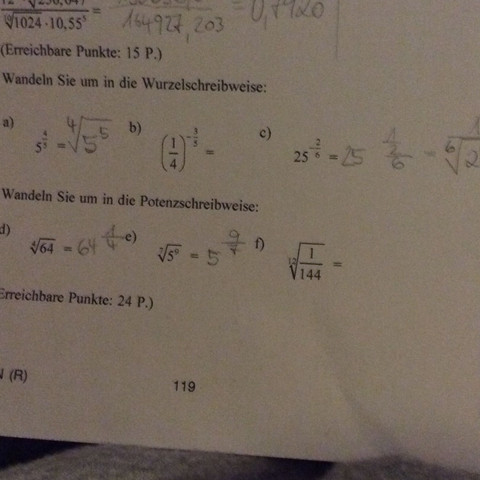 1024 · 10,55⁵ = 164927,203 = 0,7920
(Erreichbare Punkte: 15 P.)
Wandeln Sie um in die Wurzelschreibweise:
a) 5^(4/5) = ⁴√5⁵ b) (1/4)^(-3/5) = c) 25^(-2/6) = 25
Wandeln Sie um in die Potenzschreibweise:
d) ⁴√64 = 64^(1/4) e) ⁷√5⁹ = 5^(9/7) f) ¹²√(1/144) =
Erreichbare Punkte: 24 P.)
(R)
119